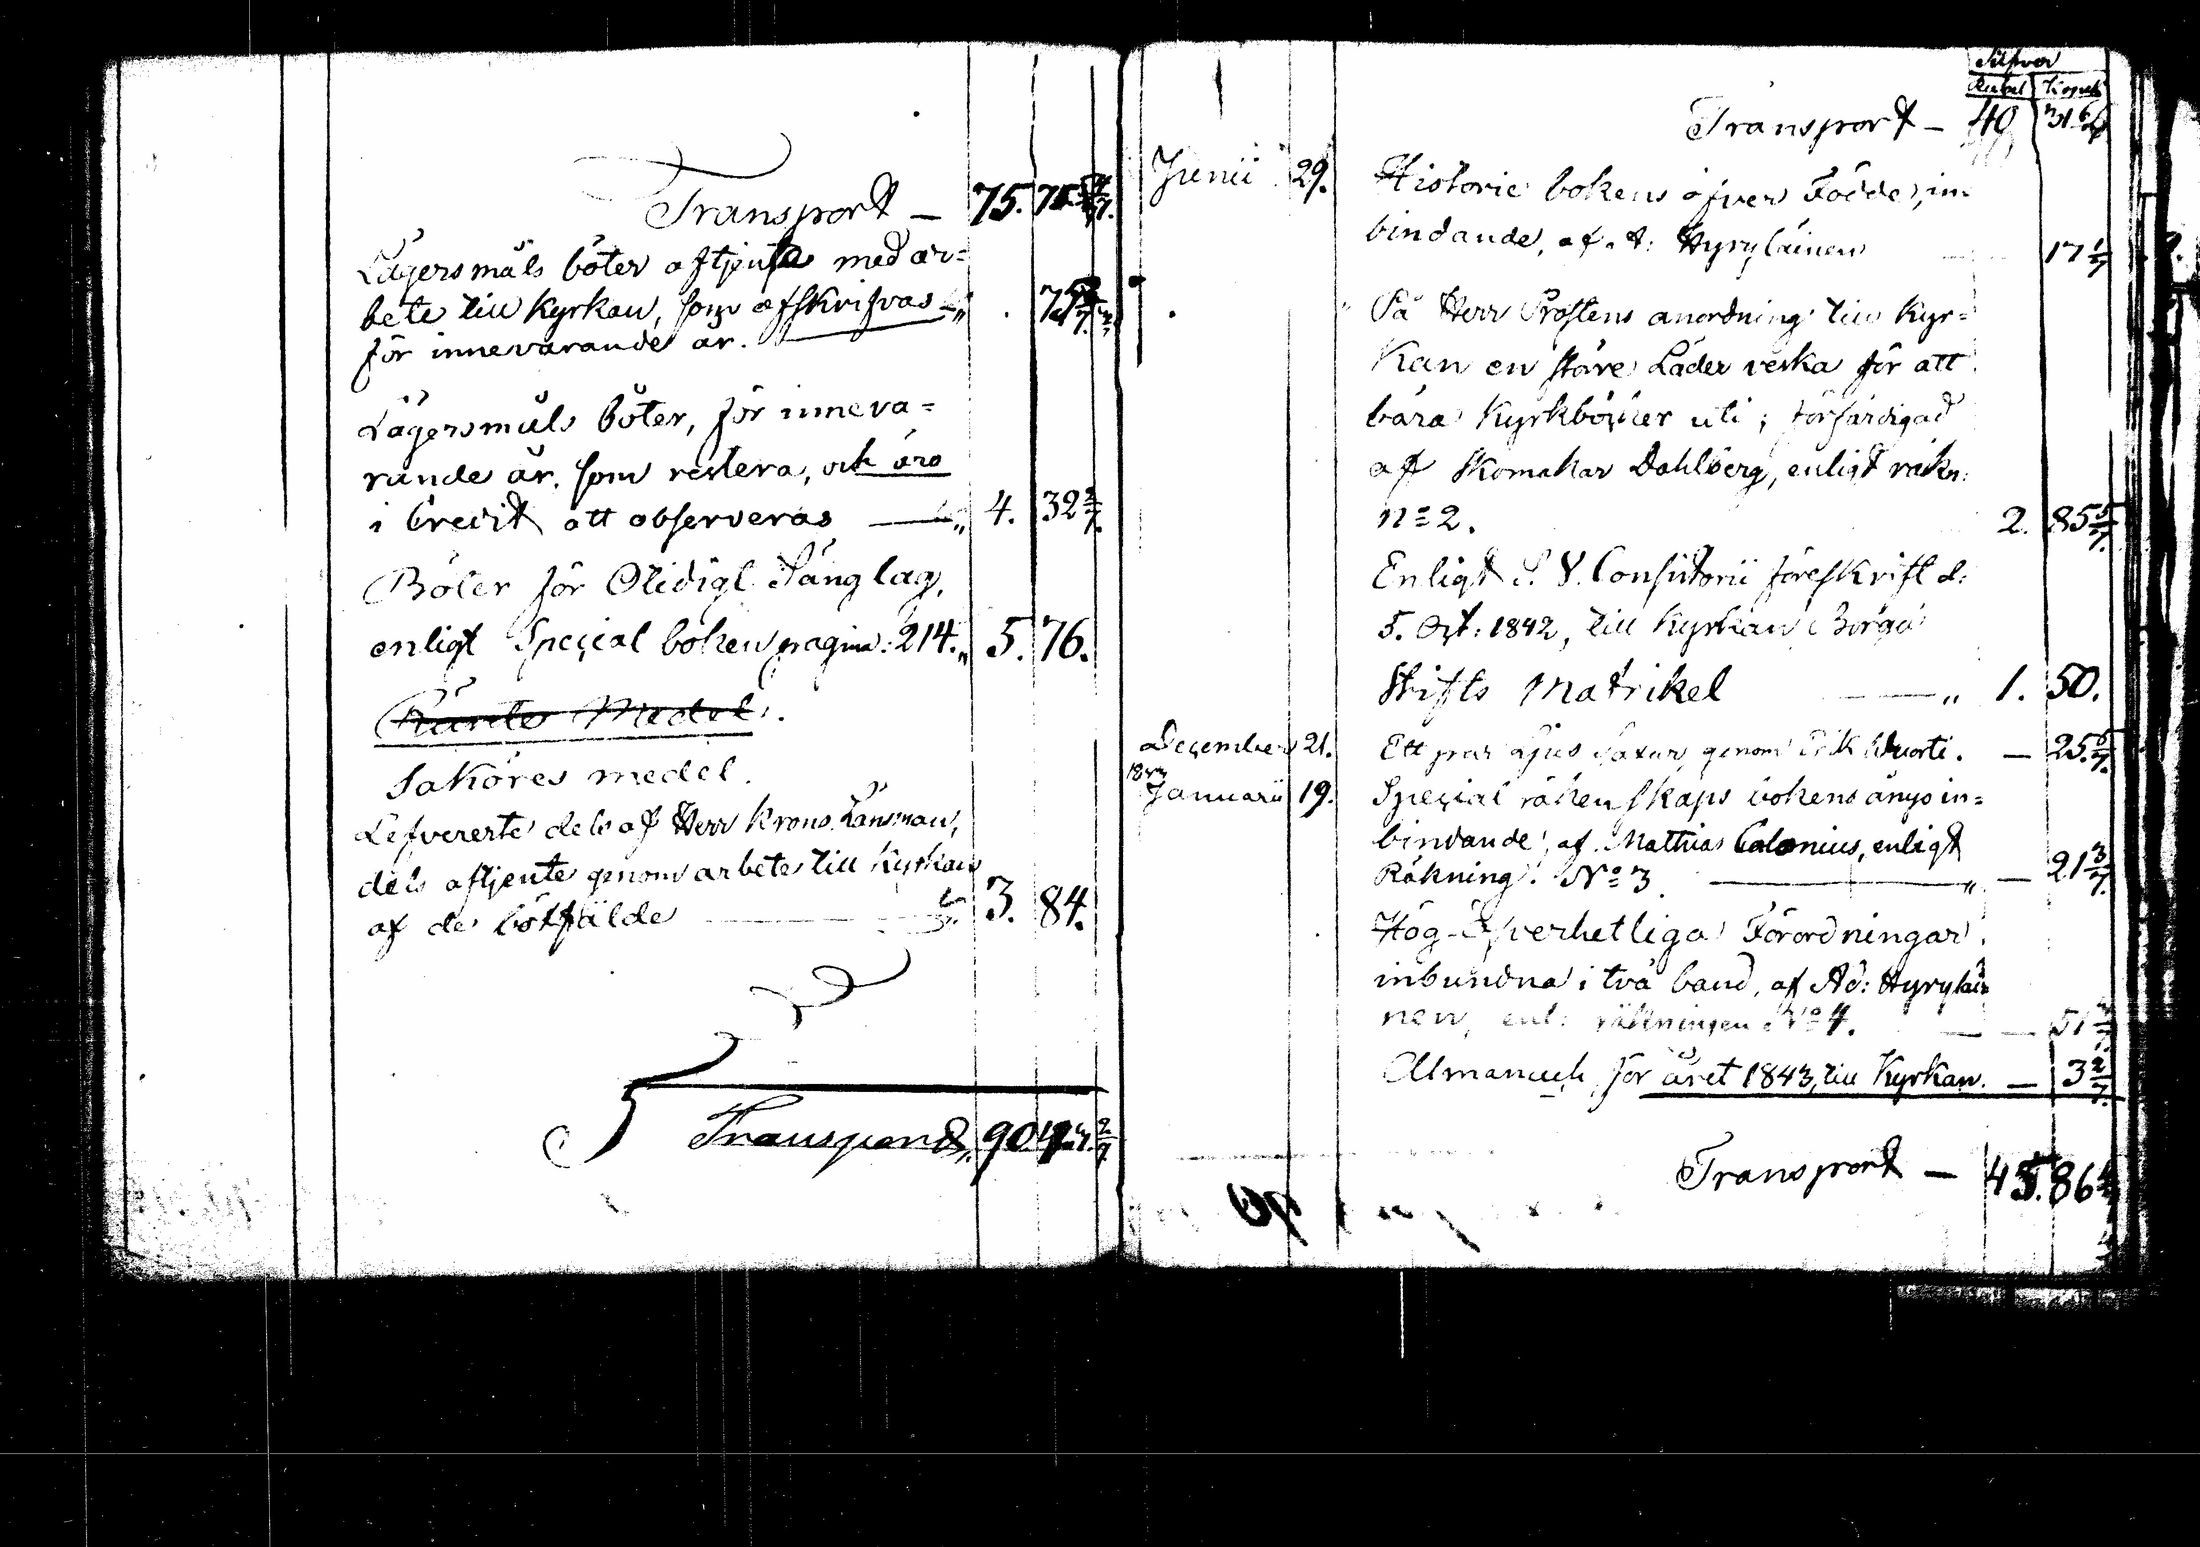 Transport — 75. 75
Lägersmåls böter aftjente med ar=
bete till Kyrkan, som afskrifvas
för innevarande år.
Lägersmåls böter, för inneva=
rande år, som restera, och äro
i Credit att observeras — „ 4. 32 2/7.
Böter för Otidigt Sänglag,
enligt Special boken pagina: 214. „ 5. 76.
Ränte Medel.
Saköres medel.
Lefvererte dels af Herr Krono Länsman,
dels aftjente genom arbete till Kyrkan
af de botfälde — 3. 84.
Transport „ 90.
Silfver
Rubel Kopek
Transport — 40 31 6/7
Junii 29. Historie bokens öfver Födde, in-
bindande, af A: Hyryläinen 17 1/7
„ På Herr Prostens anordning till Kyr=
kan en större Läder veska för att
bära Kyrkböcker uti; förfärdigad
af Skomakar Dahlberg, enligt räkn:
no 2. 2. 85 5/7.
Enligt S. V. Consistorii föreskrift d:
5. Oct: 1842, till Kyrkan Borgå
Stifts Matrikel — „ 1. 50.
December 21. Ett par Ljus Saxar, genom Erik Wuorti. — 25. 5/7.
1843
Januarii 19. Special räkenskaps bokens ånyo in=
bindande, af Mathias Calonius, enligt
Räkning. No 3 — „ — 21 3/7.
Hög-Öfverhetliga Förordningar,
inbundna i två band, af Ad: Hyryläi=
nen, enl: räkningen No 4. — 51 3/7
Almanach för året 1843, till Kyrkan. — 3 2/7.
Transport — 45. 86